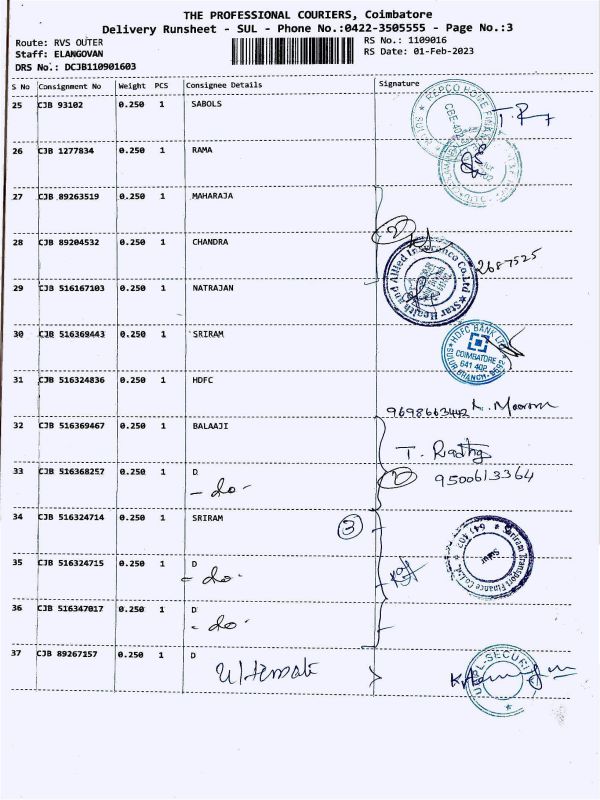 THE PROFESSIONAL COURIERS, Coimbatore
Delivery Runsheet - SUL - Phone No.:0422-3505555 - Page No.:3
Route: RVS OUTER RS No.: 1109016
Staff: ELANGOVAN RS Date: 01-Feb-2023
DRS No.: DCJB110901603
S No Consignment No Weight PCS Consignee Details Signature
25 CJB 93102 0.250 1 SABOLS
REPCO HOME FINAN
26 CJB 1277834 0.250 1 RAMA
27 CJB 89263519 0.250 1 MAHARAJA
2
28 CJB 89204532 0.250 1 CHANDRA
Star Health and Allied Insurance Co.Ltd
2687525
29 CJB 516167103 0.250 1 NATRAJAN
30 CJB 516369443 0.250 1 SRIRAM
HDFC BANK LTD
COIMBATORE
641 402
SULUR BRANCH
31 CJB 516324836 0.250 1 HDFC
9698663442
32 CJB 516369467 0.250 1 BALAAJI
33 CJB 516368257 0.250 1 D
- do -
9500613364
34 CJB 516324714 0.250 1 SRIRAM
3
Shriram Transport Finance Co.Ltd. 641 402
Sulur
35 CJB 516324715 0.250 1 D
- do -
36 CJB 516347017 0.250 1 D
- do -
37 CJB 89267157 0.250 1 D
Ultimate
SECURITY